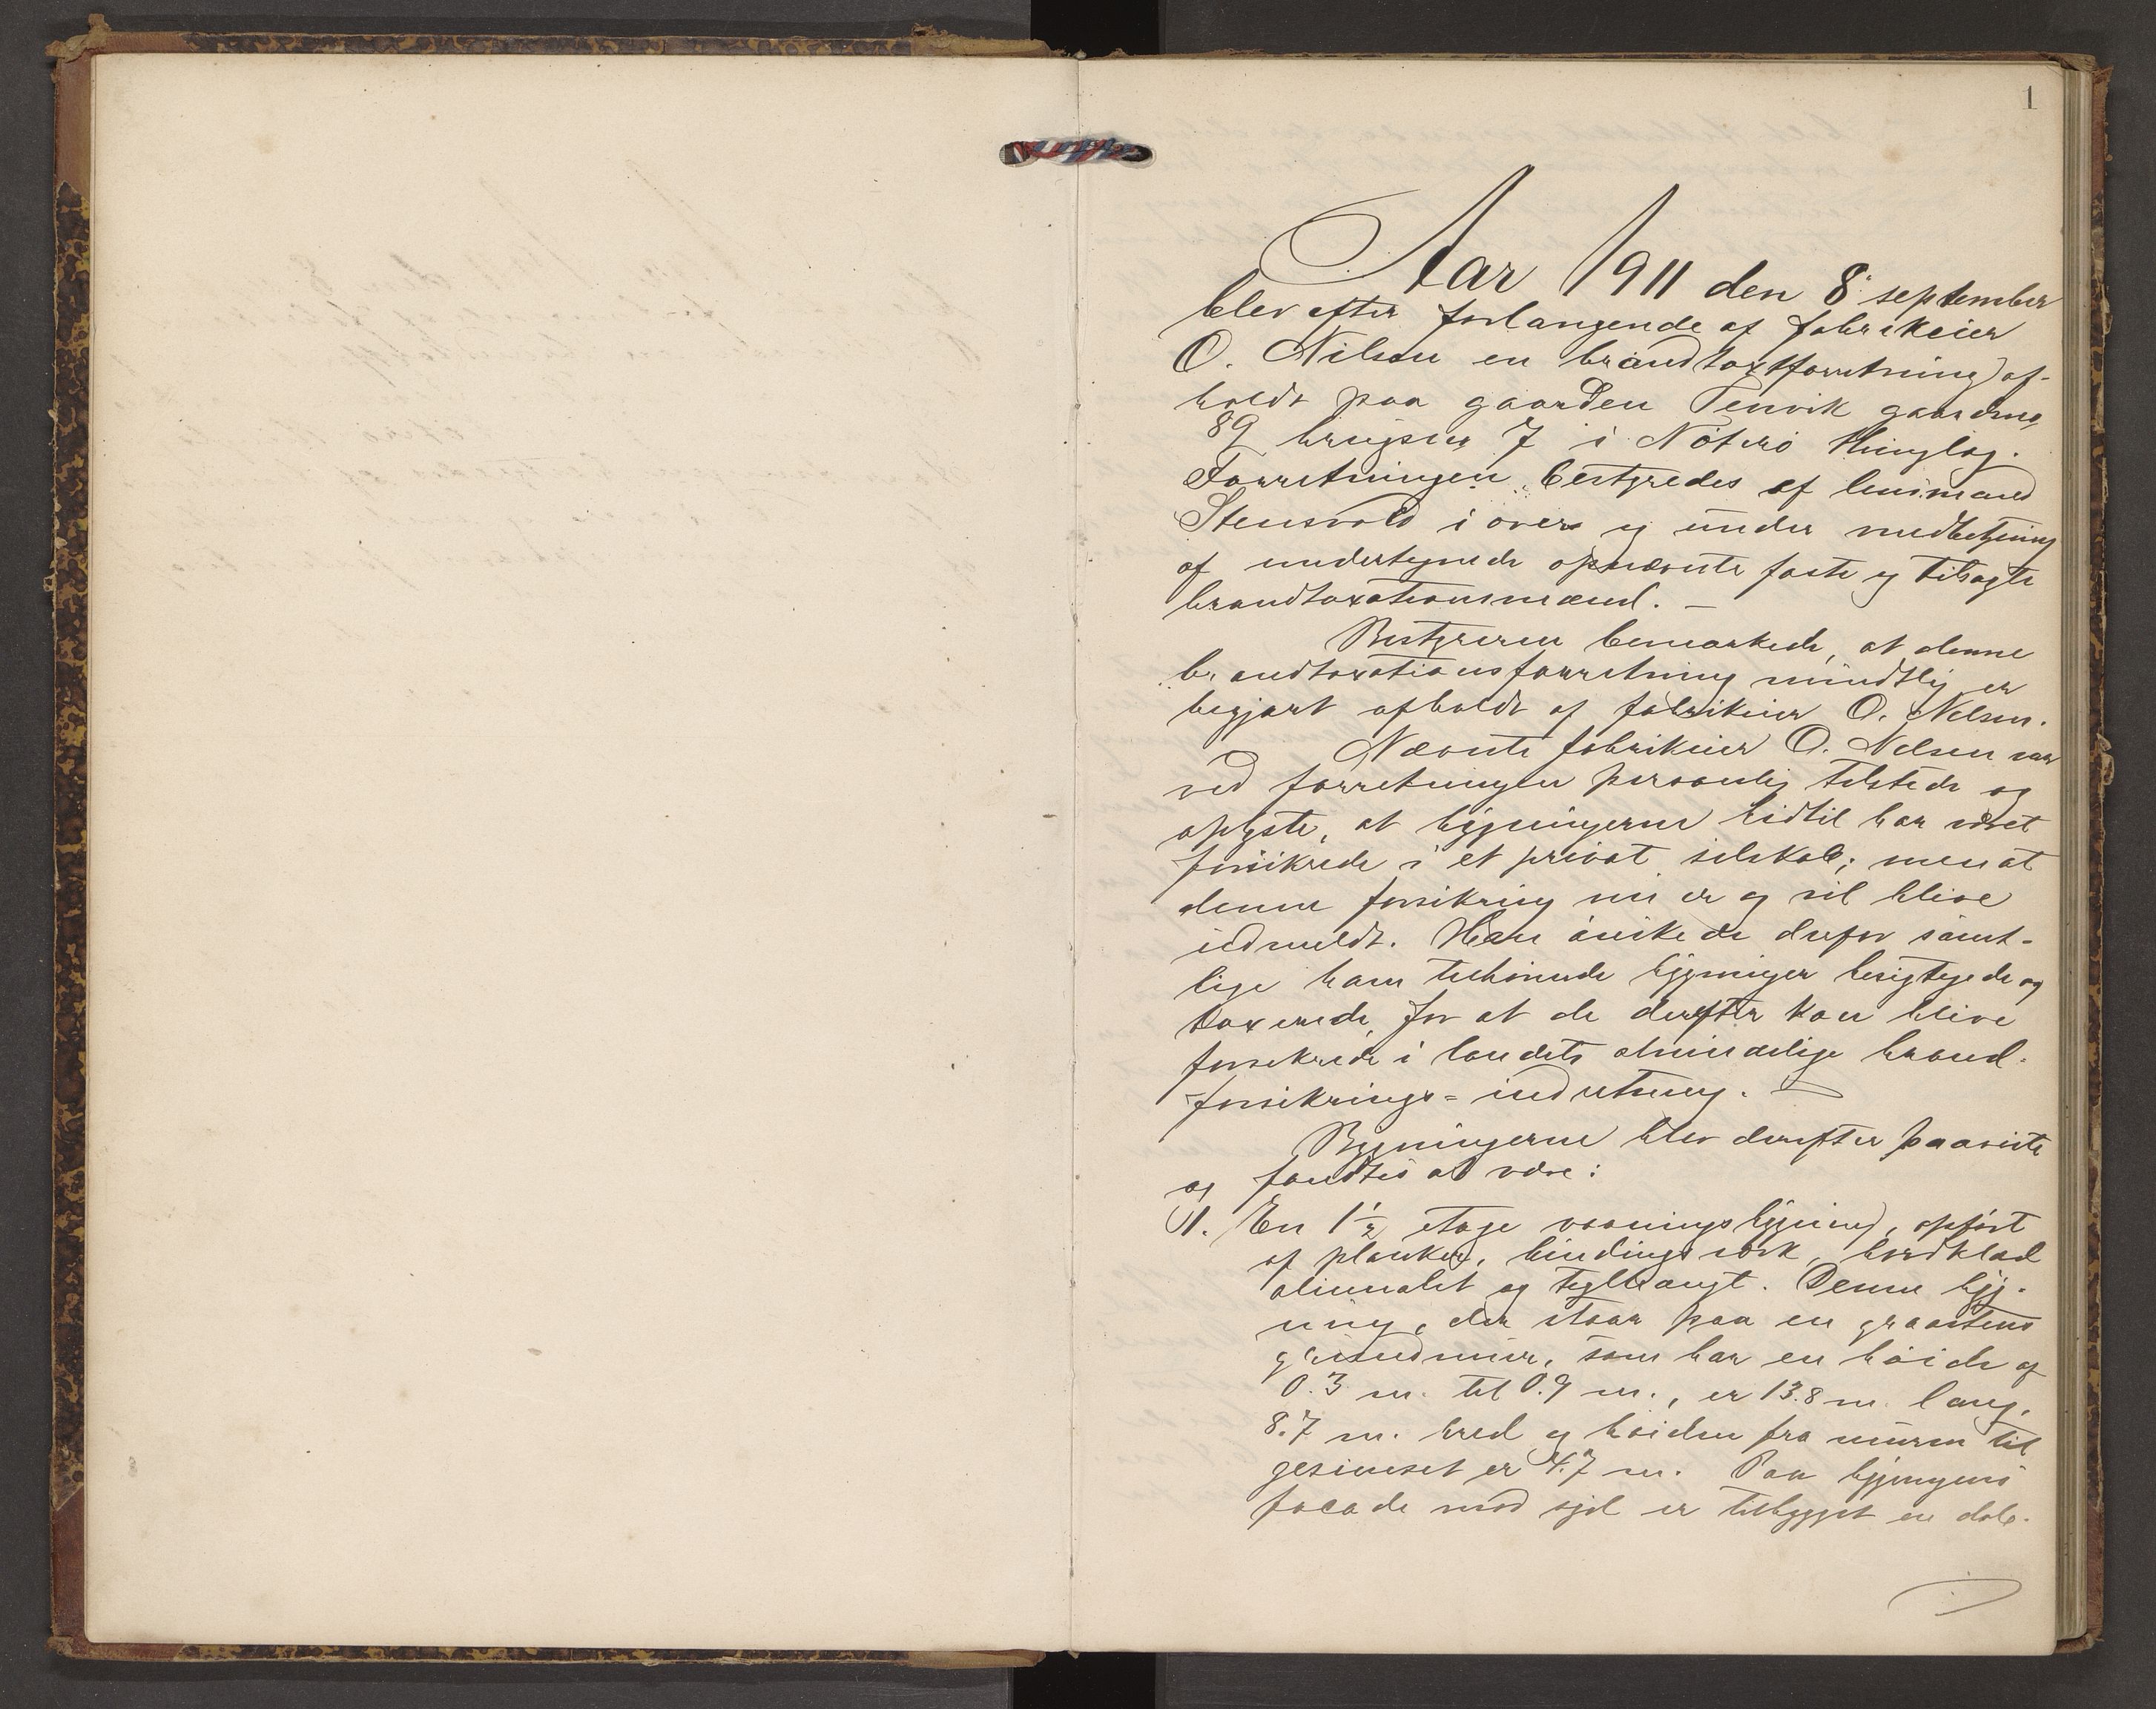 1
Aar 1911 den 8. september
blev efter forlangende af fabrikeier
O. Nilsen en brandtaxtforretning af-
holdt paa gaarden Tenvik gaardsno
89 brugsno 7 i Nøterø thinglag.
Forretningen bestyredes af lensmand
Stensvold i overv og under medbetjening
af undertegnede opnævnte faste og tilsagte
brandtaxationsmænd. —
Bestyreren bemærkede, at denne
brandtaxationsforretning mundtlig er
begjært afholdt af fabrikeier O. Nilsen.
Nævnte fabrikeier O. Nilsen var
ved forretningen personlig tilstede og
oplyste, at bygningerne hidtil har været
forsikrede i et privat selskab; men at
denne forsikring nu er og vil blive
udmeldt. Han ønskede derfor samt-
lige ham tilhørende bygninger besigtigede og
taxerede, for at de derefter kan blive
forsikrede i landets almindelige brand-
forsikrings=indretning. —
Bygningerne blev derefter paaviste
og fandtes at være:
1. En 1½ etage vaaningsbygning, opført
af planker, bindingsverk, bordklæd
oliemalet og teglhængt. Denne byg-
ning, der staar paa en graastens
grundmur, som har en høide af
0.3 m. til 0.9 m., er 13.8 m. lang,
8.7 m. bred og høiden fra muren til
gesimset er 4.7 m. Paa bygningens
facade mod syd er tilbygget en dob-